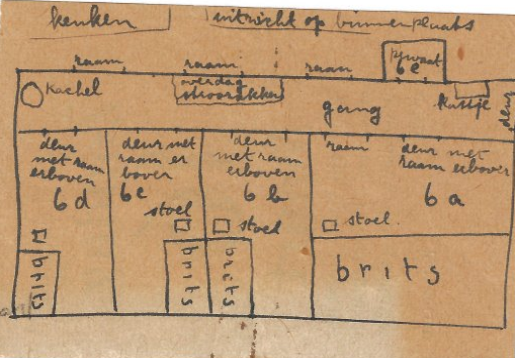 keuken
uitzicht op binnenplaats
raam
raam
raam
privaat
6e
kachel
overdag
strozakken
gang
kastje
deur
deur
met raam
erboven
6d
deur met
raam er
boven
6c
stoel
deur
met raam
erboven
6b
stoel
raam
deur met
raam erboven
6a
stoel
brits
brits
brits
brits